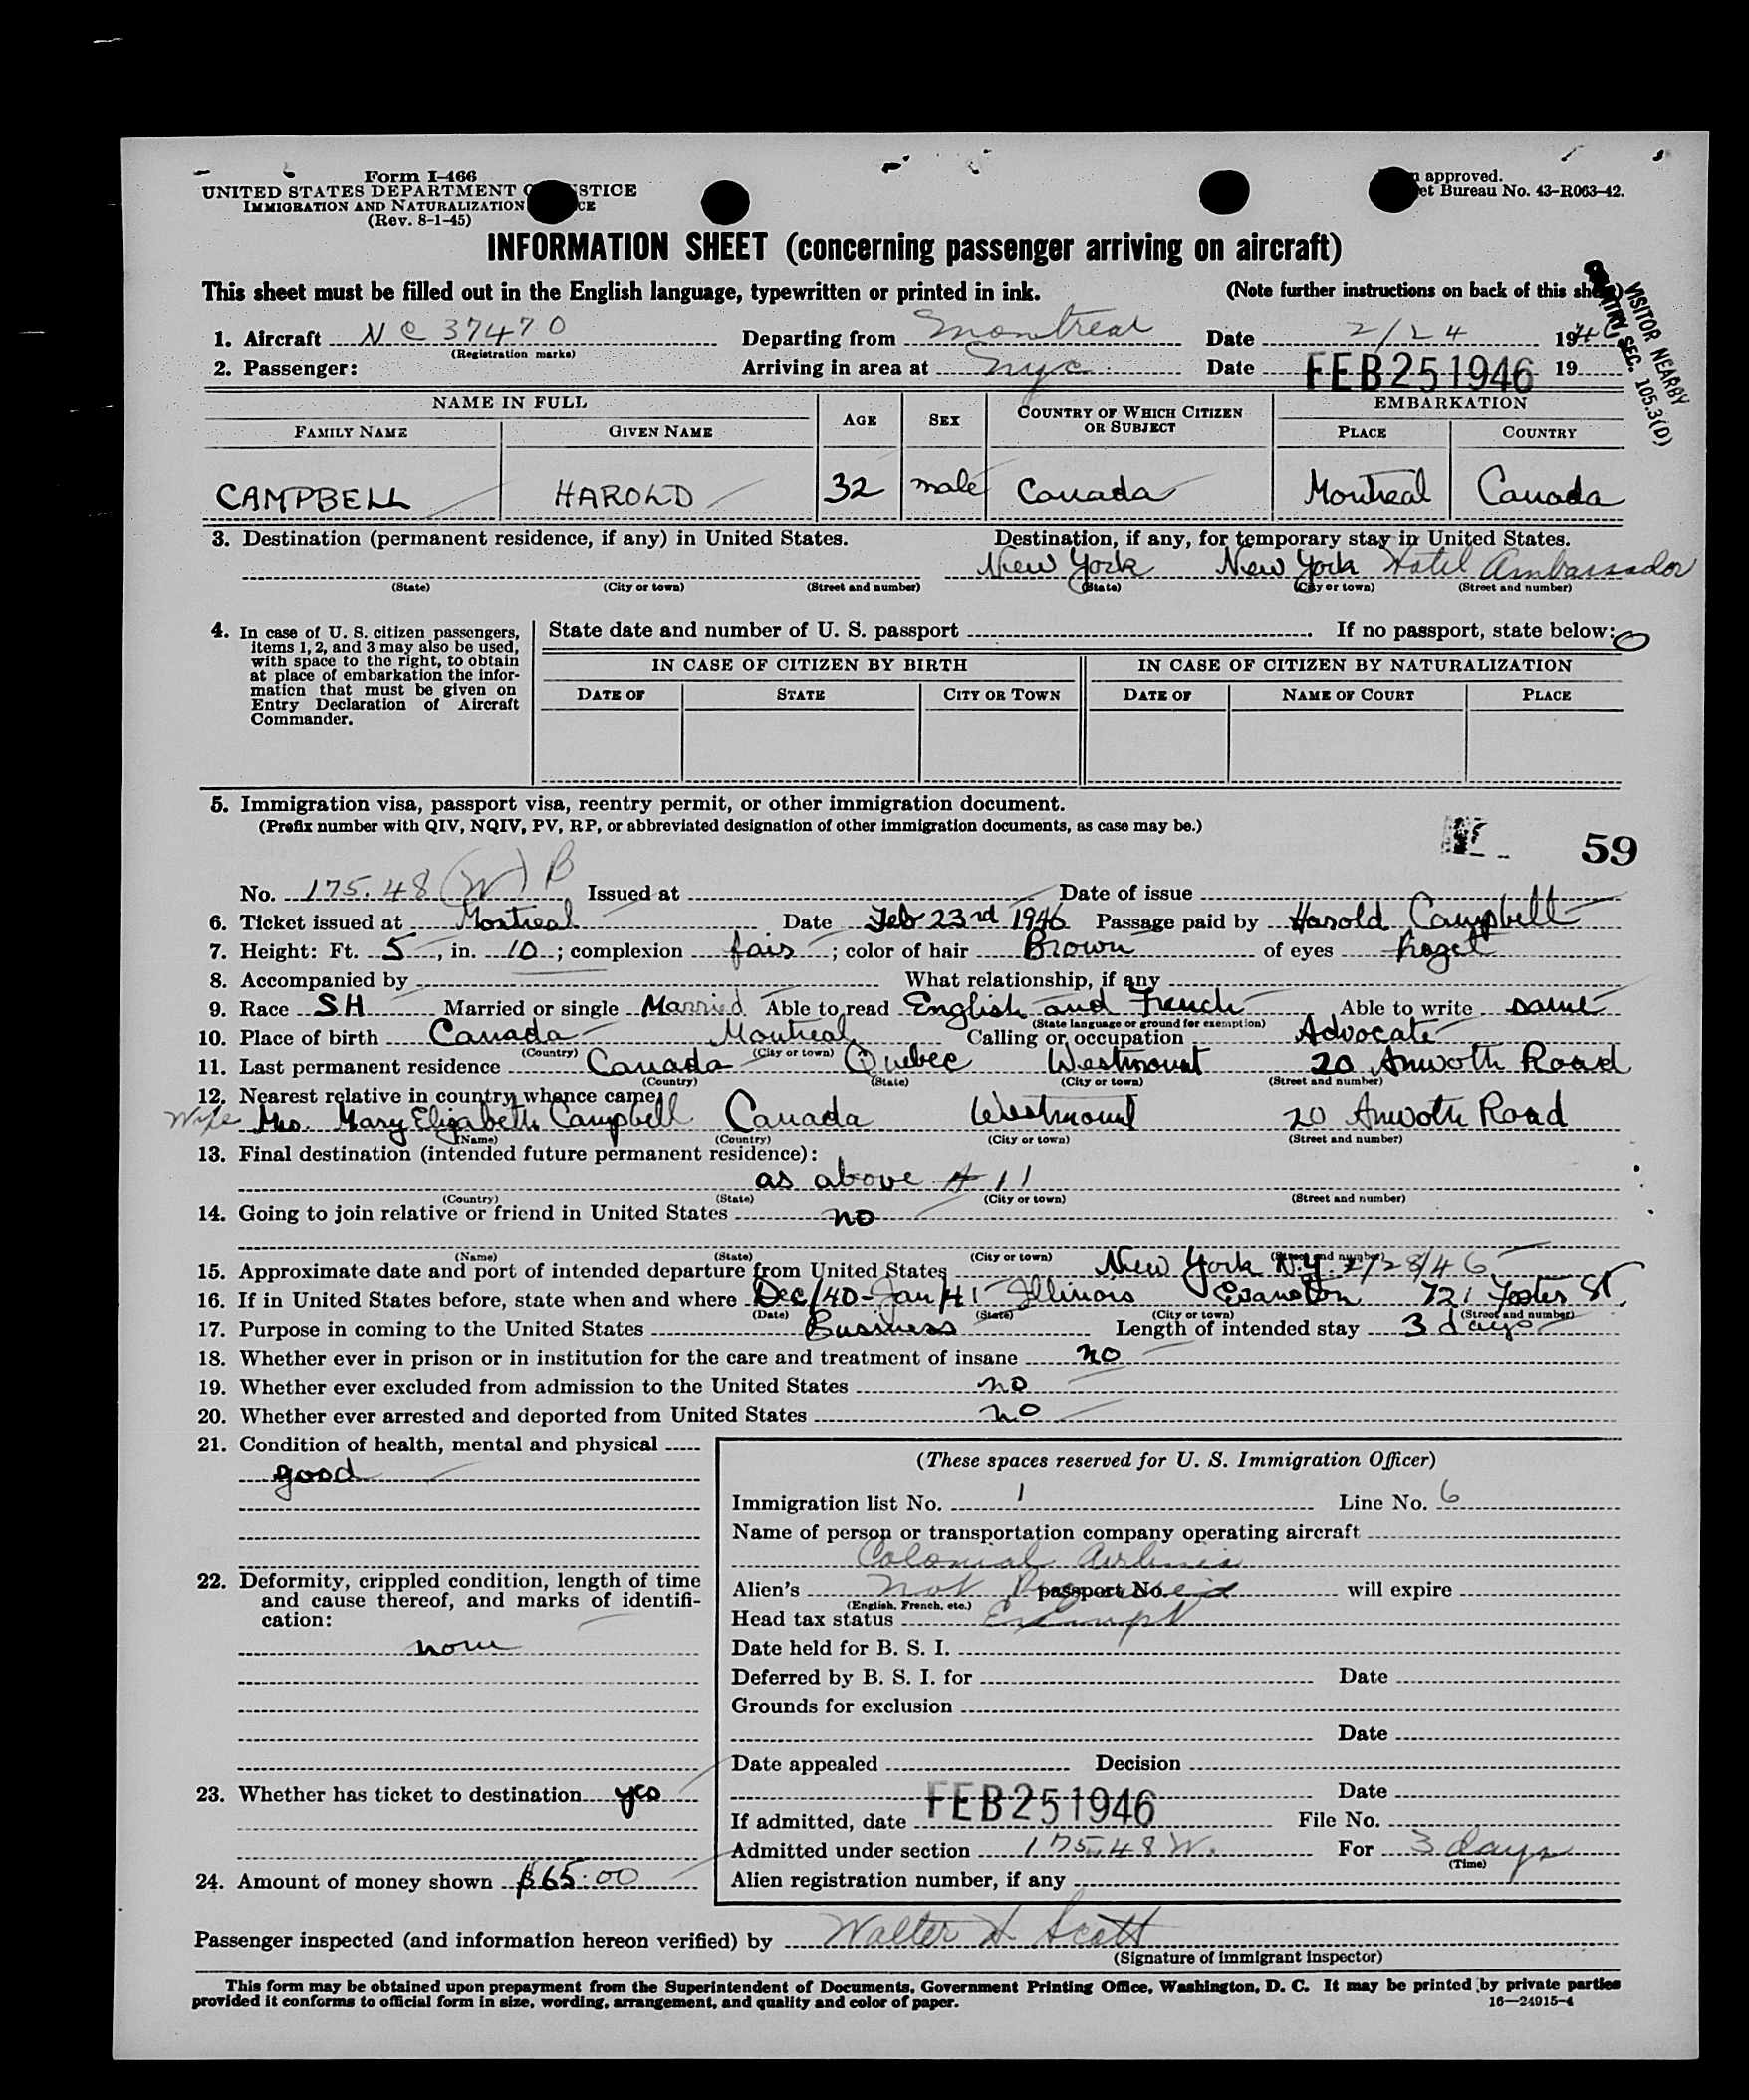 Form I-466
UNITED STATES DEPARTMENT O STICE
IMMIGRATION AND NATURALIZATION CE
(Rev. 8-1-45)
approved.
et Bureau No. 43-R063-42.
INFORMATION SHEET (concerning passenger arriving on aircraft)
This sheet must be filled out in the English language, typewritten or printed in ink. (Note further instructions on back of this sheet)
VISITOR NEARBY
SEC. 105.3(D)
1. Aircraft NC 37470 Departing from Montreal Date 2/24 1946
(Registration marks)
2. Passenger: Arriving in area at Nyc Date FEB 25 1946 19
NAME IN FULL AGE SEX COUNTRY OF WHICH CITIZEN OR SUBJECT EMBARKATION
FAMILY NAME GIVEN NAME PLACE COUNTRY
CAMPBELL HAROLD 32 male Canada Montreal Canada
3. Destination (permanent residence, if any) in United States. Destination, if any, for temporary stay in United States.
New York New York Hotel Ambassador
(State) (City or town) (Street and number) (State) (City or town) (Street and number)
4. In case of U. S. citizen passengers, items 1, 2, and 3 may also be used, with space to the right, to obtain at place of embarkation the information that must be given on Entry Declaration of Aircraft Commander.
State date and number of U. S. passport . If no passport, state below:
IN CASE OF CITIZEN BY BIRTH IN CASE OF CITIZEN BY NATURALIZATION
DATE OF STATE CITY OR TOWN DATE OF NAME OF COURT PLACE
5. Immigration visa, passport visa, reentry permit, or other immigration document.
(Prefix number with QIV, NQIV, PV, RP, or abbreviated designation of other immigration documents, as case may be.)
59
No. 175.48 (W) B Issued at Date of issue
6. Ticket issued at Montreal Date Feb 23rd 1946 Passage paid by Harold Campbell
7. Height: Ft. 5, in. 10; complexion fair; color of hair Brown of eyes hazel
8. Accompanied by What relationship, if any
9. Race SH Married or single Married Able to read English and French Able to write same
(State language or ground for exemption)
10. Place of birth Canada Montreal Calling or occupation Advocate
(Country) (City or town)
11. Last permanent residence Canada Quebec Westmount 20 Anwoth Road
(Country) (State) (City or town) (Street and number)
12. Nearest relative in country whence came
Wife Mrs. Mary Elizabeth Campbell Canada Westmount 20 Anwoth Road
(Name) (Country) (City or town) (Street and number)
13. Final destination (intended future permanent residence):
as above # 11
(Country) (State) (City or town) (Street and number)
14. Going to join relative or friend in United States no
(Name) (State) (City or town) (Street and number)
15. Approximate date and port of intended departure from United States New York N.Y. 2/28/46
16. If in United States before, state when and where Dec/40-Jan/41 Illinois Evanston 721 Foster St.
(Date) (State) (City or town) (Street and number)
17. Purpose in coming to the United States Business Length of intended stay 3 days
18. Whether ever in prison or in institution for the care and treatment of insane no
19. Whether ever excluded from admission to the United States no
20. Whether ever arrested and deported from United States no
21. Condition of health, mental and physical
good
22. Deformity, crippled condition, length of time and cause thereof, and marks of identification:
none
23. Whether has ticket to destination yes
24. Amount of money shown $65.00
(These spaces reserved for U. S. Immigration Officer)
Immigration list No. 1 Line No. 6
Name of person or transportation company operating aircraft
Colonial Airlines
Alien's not Required passport No. will expire
(English, French, etc.)
Head tax status Exempt
Date held for B. S. I.
Deferred by B. S. I. for Date
Grounds for exclusion
Date
Date appealed Decision
Date
If admitted, date FEB 25 1946 File No.
Admitted under section 175.48 W. For 3 days
(Time)
Alien registration number, if any
Passenger inspected (and information hereon verified) by Walter H Scott
(Signature of immigrant inspector)
This form may be obtained upon prepayment from the Superintendent of Documents, Government Printing Office, Washington, D. C. It may be printed by private parties
provided it conforms to official form in size, wording, arrangement, and quality and color of paper. 16—24915-4